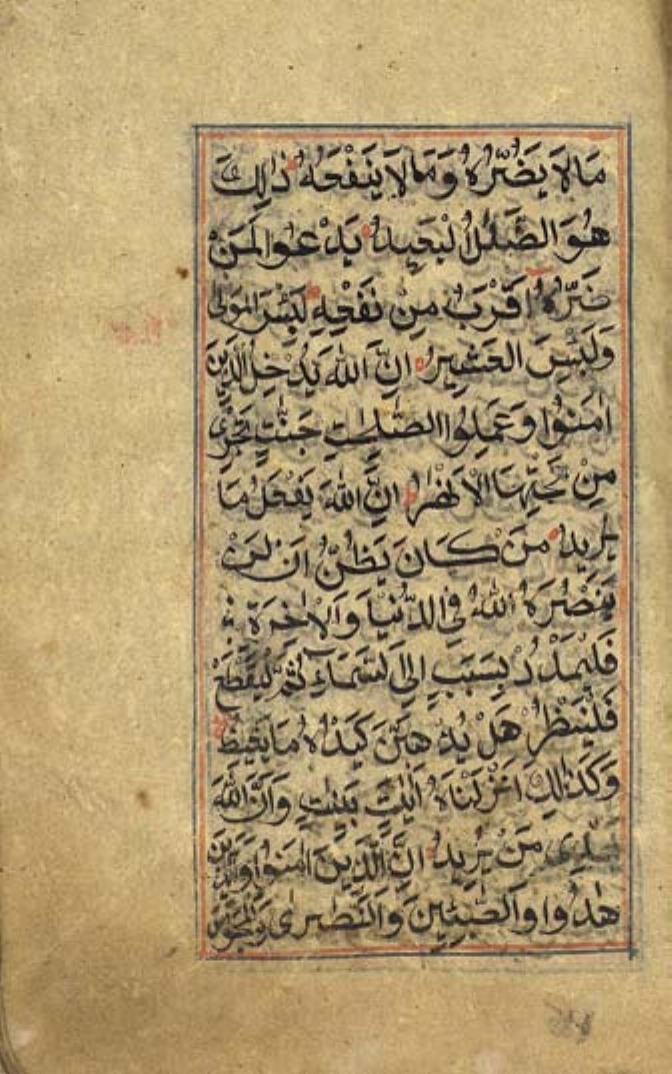 مَالَا يَضُرُّهُ وَمَالَا يَنْفَعُهُ ذٰلِكَ
هُوَ الضَّلٰلُ الْبَعِيدُ يَدْعُوا لَمَنْ
ضَرُّهُ اَقْرَبُ مِنْ نَفْعِهِ لَبِئْسَ الْمَوْلٰى
وَلَبِئْسَ الْعَشِيرُ اِنَّ اللّٰهَ يُدْخِلُ الَّذِينَ
اٰمَنُوا وَعَمِلُوا الصّٰلِحٰتِ جَنّٰتٍ تَجْرِى
مِنْ تَحْتِهَا الْاَنْهٰرُ اِنَّ اللّٰهَ يَفْعَلُ مَا
يُرِيدُ مَنْ كَانَ يَظُنُّ اَنْ لَنْ
يَنْصُرَهُ اللّٰهُ فِى الدُّنْيَا وَالْاٰخِرَةِ
فَلْيَمْدُدْ بِسَبَبٍ اِلَى السَّمَاءِ ثُمَّ لْيَقْطَعْ
فَلْيَنْظُرْ هَلْ يُذْهِبَنَّ كَيْدُهُ مَا يَغِيظُ
وَكَذٰلِكَ اَنْزَلْنَاهُ اٰيٰتٍ بَيِّنٰتٍ وَاَنَّ اللّٰهَ
يَهْدِى مَنْ يُرِيدُ اِنَّ الَّذِينَ اٰمَنُوا وَالَّذِينَ
هَادُوا وَالصّٰبِئِينَ وَالنَّصٰرٰى وَالْمَجُوسَ